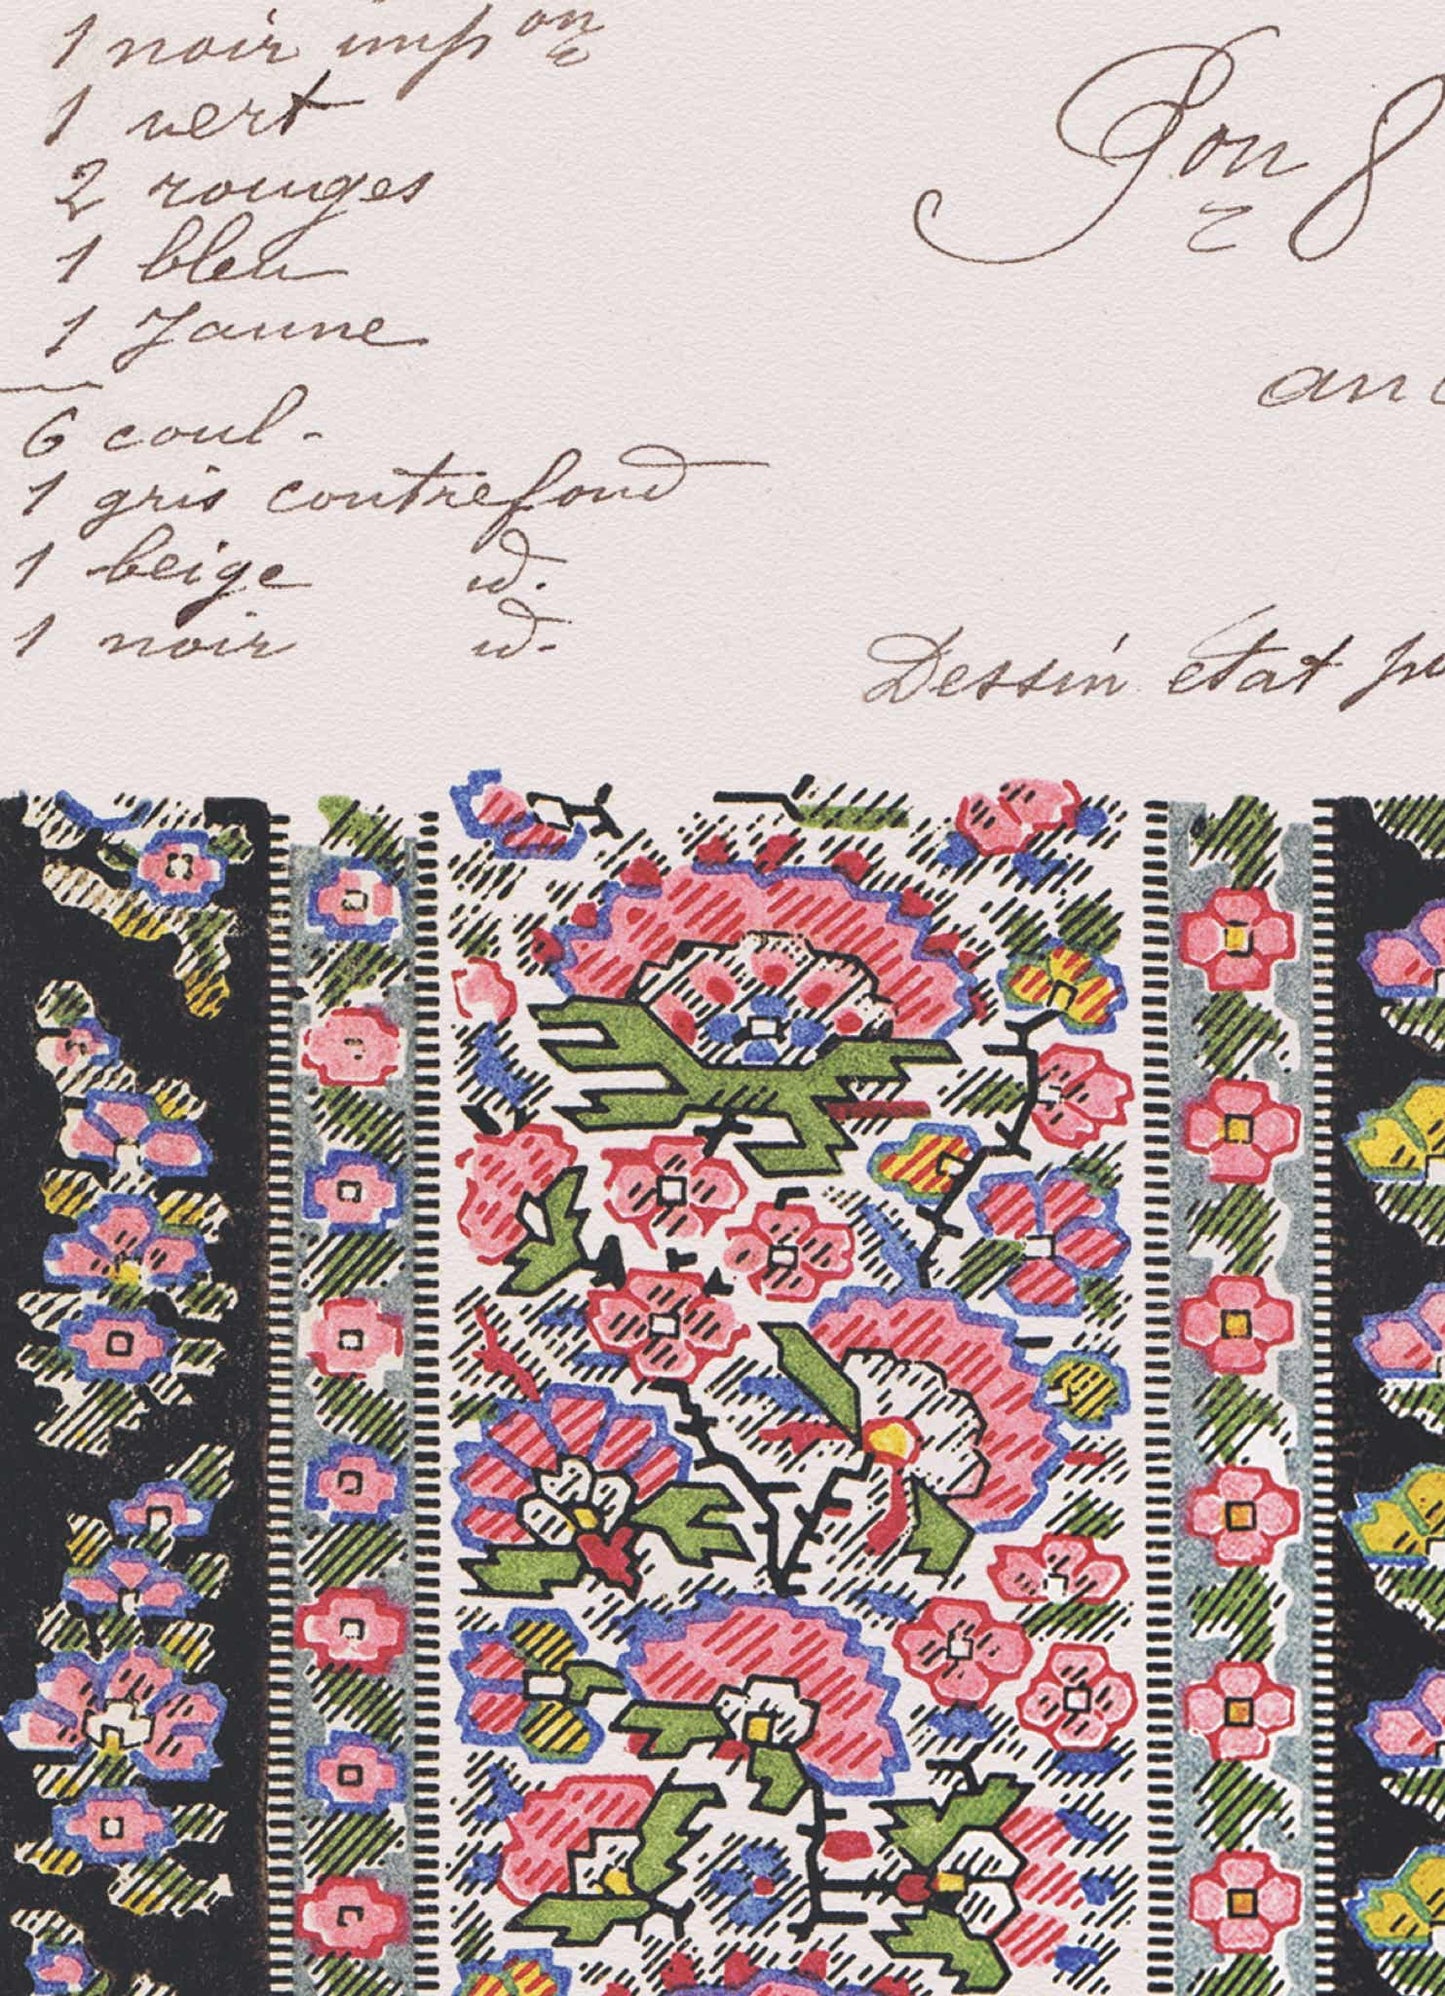 1 noir imp on
1 vert
2 rouges
1 bleu
1 Jaune
6 coul-
1 gris contrefond
1 beige id.
1 noir id-
on 8
an
Dessin état